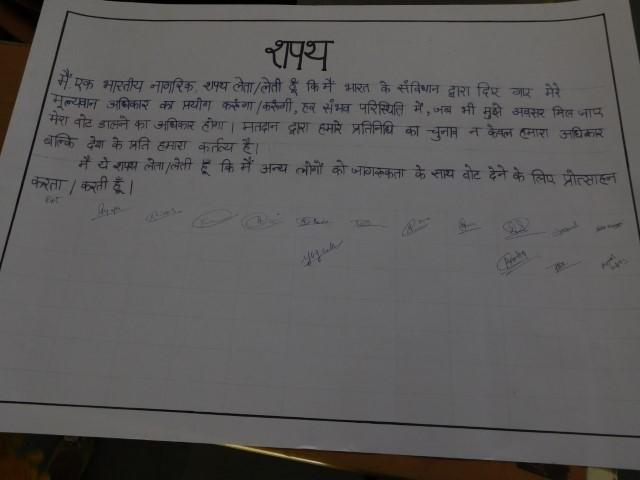 शपथ
मैं एक भारतीय नागरिक, शपथ लेता/लेती हूँ कि मैं भारत के संविधान द्वारा दिए गए मेरे
मूल्यवान अधिकार का प्रयोग करूँगा/करूँगी, हर संभव परिस्थिति में, जब भी मुझे अवसर मिल जाए
मेरा वोट डालने का अधिकार होगा। मतदान द्वारा हमारे प्रतिनिधि का चुनाव न केवल हमारा अधिकार
बल्कि देश के प्रति हमारा कर्तव्य है।
मैं ये शपथ लेता/लेती हूँ कि मैं अन्य लोगों को जागरूकता के साथ वोट देने के लिए प्रोत्साहन
करता / करती हूँ।